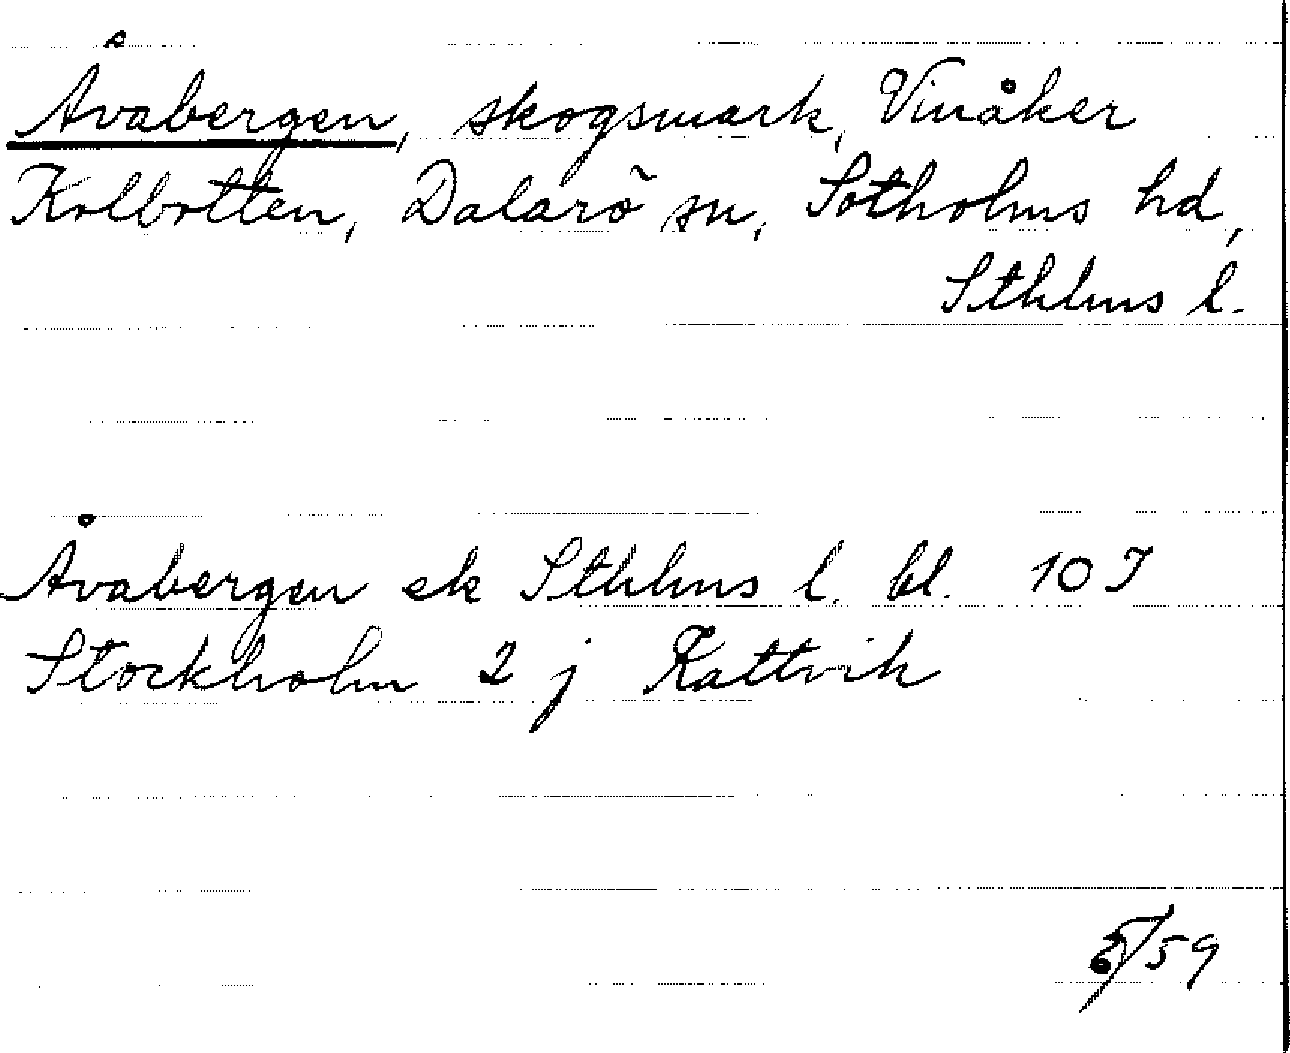 Åvabergen, skogsmark, Vinåker
Kolbotten, Dalarö sn, Sotholms hd,
Sthlms l.
Åvabergen ek Sthlms l. bl. 10 I
Stockholm 2 j Rattvik
/59